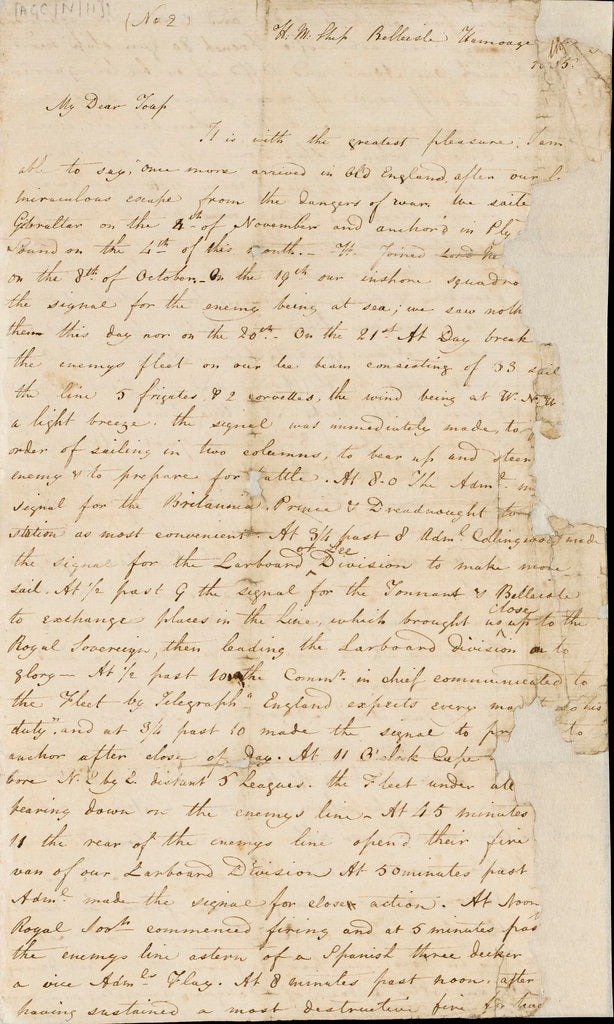 [AGC/N/11]
(No. 2
H. M. Ship Belleisle Hamoaze
My Dear Toup
It is with the greatest pleasure, I am
able to say, once more arrived in Old England, after our
miraculous escape from the dangers of war. We saile
Gibraltar on the 4th of November and anchor'd in Ply
Sound on the 4th of this month. — Joined Lord Ne
on the 8th of October. On the 19th our inshore squadro
the signal for the enemy being at sea; we saw noth
them this day nor on the 20th. On the 21st At Day break
the enemys fleet on our lee beam consisting of 33 sail
the line 5 frigates & 2 corvettes, the wind being at W.N.W
a light breeze. the signal was immediately made, to
order of sailing in two columns, to bear up and steer
enemy & to prepare for battle. At 8.0 The Adml. m
signal for the Britannia, Prince & Dreadnought to
station as most convenient. At 3/4 past 8 Adml. Collingwood made
the signal for the Larboard or Lee Division to make more
sail. At 1/2 past 9 the signal for the Tonnant & Belleisle
to exchange places in the Line, which brought us close up to the
Royal Sovereign, then leading the Larboard division on to
glory — At 1/2 past 10 the Commr. in chief communicated to
the Fleet by Telegraph "England expects every ma his
duty", and at 3/4 past 10 made the signal to pr to
anchor after close of day. At 11 O'clock Cape
bore N.E by E. distant 5 Leagues. the Fleet under all
bearing down on the enemys line — At 45 minutes
11 the rear of the enemys line open'd their fire
van of our Larboard Division At 50 minutes past
Adml. made the signal for close action. At Noon
Royal Sovn. commenced firing and at 5 minutes pas
the enemys line astern of a Spanish three decker
a vice Adml's Flag. At 8 minutes past noon, after
having sustained a most destructive fire for